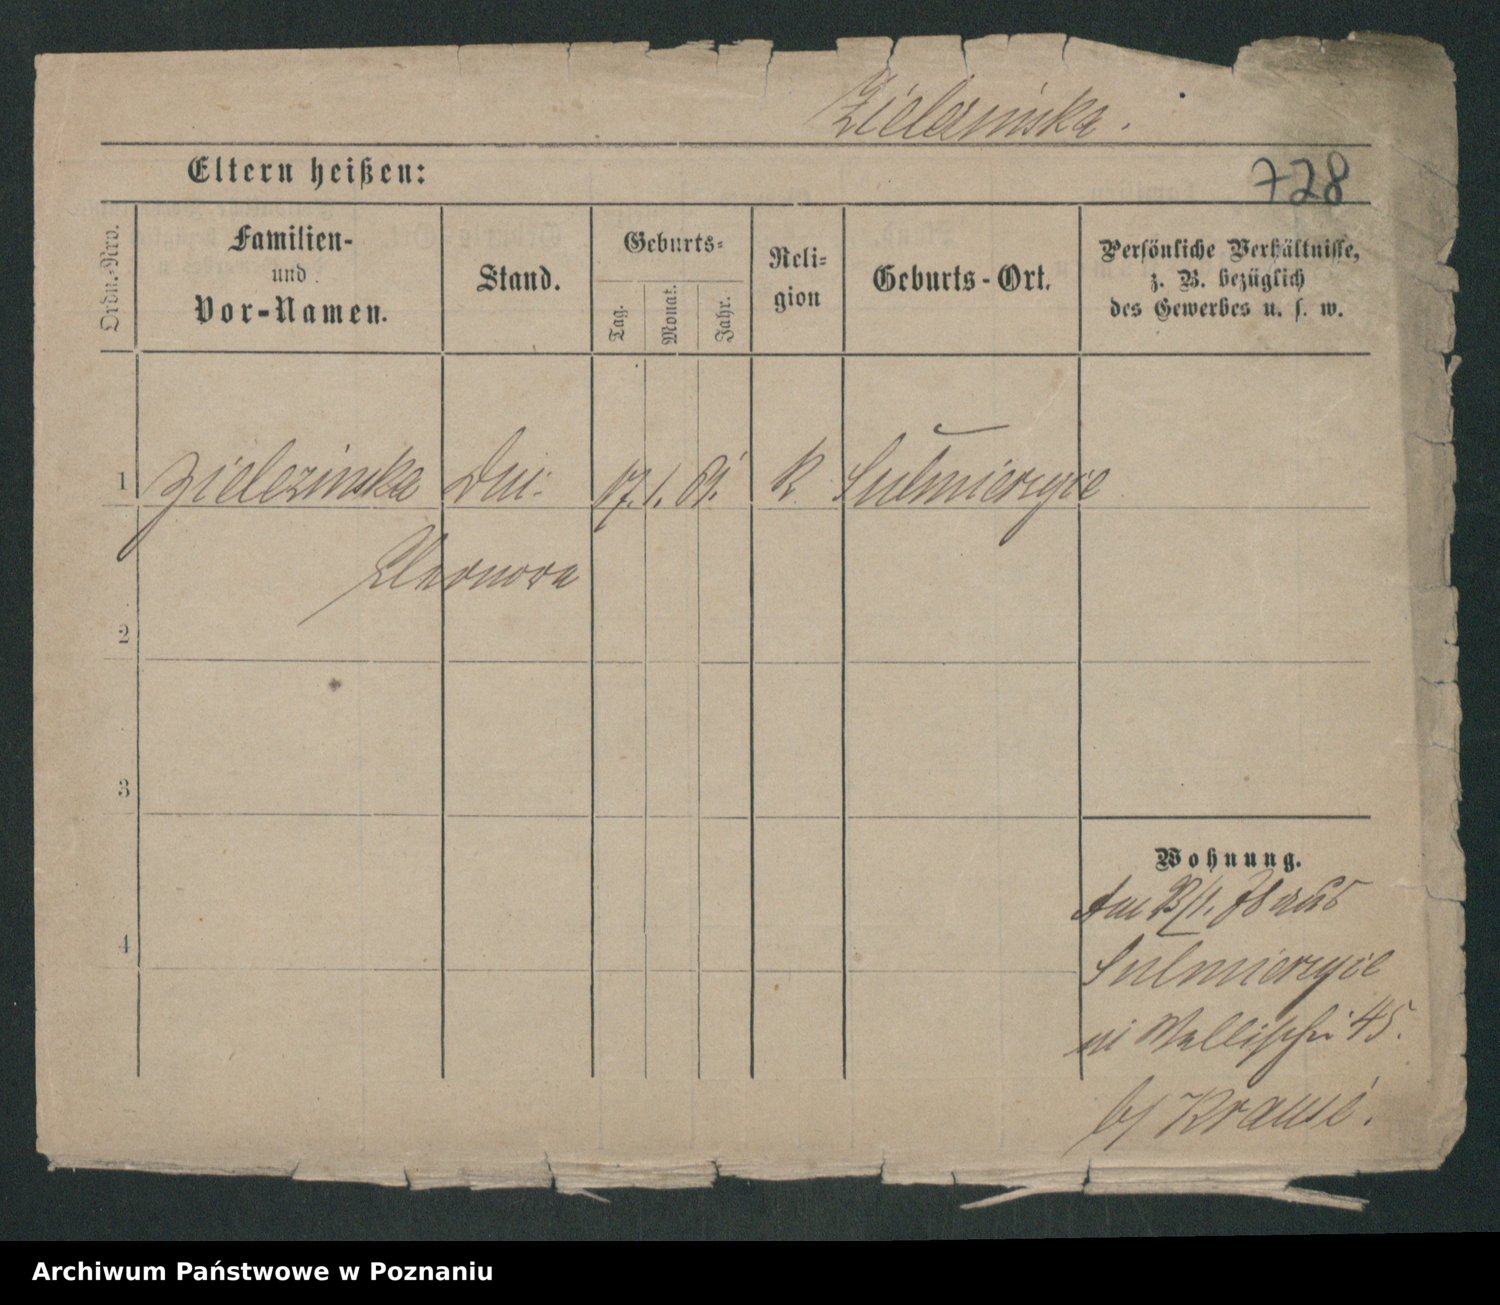 Zielezinska.
728
Eltern heißen:
Ordn.-Nro.
Familien-
und
Vor-Namen.
Stand.
Geburts-
Tag.
Monat.
Jahr.
Reli-
gion
Geburts-Ort.
Persönliche Verhältnisse,
z. B. bezüglich
des Gewerbes u. s. w.
1 Zielezinska 17. 1. 61. K Sulmierzyce
Eleonora
2
3
4
Wohnung.
Am /1. 78 aus
Sulmierzyce
Wallischei 45.
b/ Krause.
Archiwum Państwowe w Poznaniu